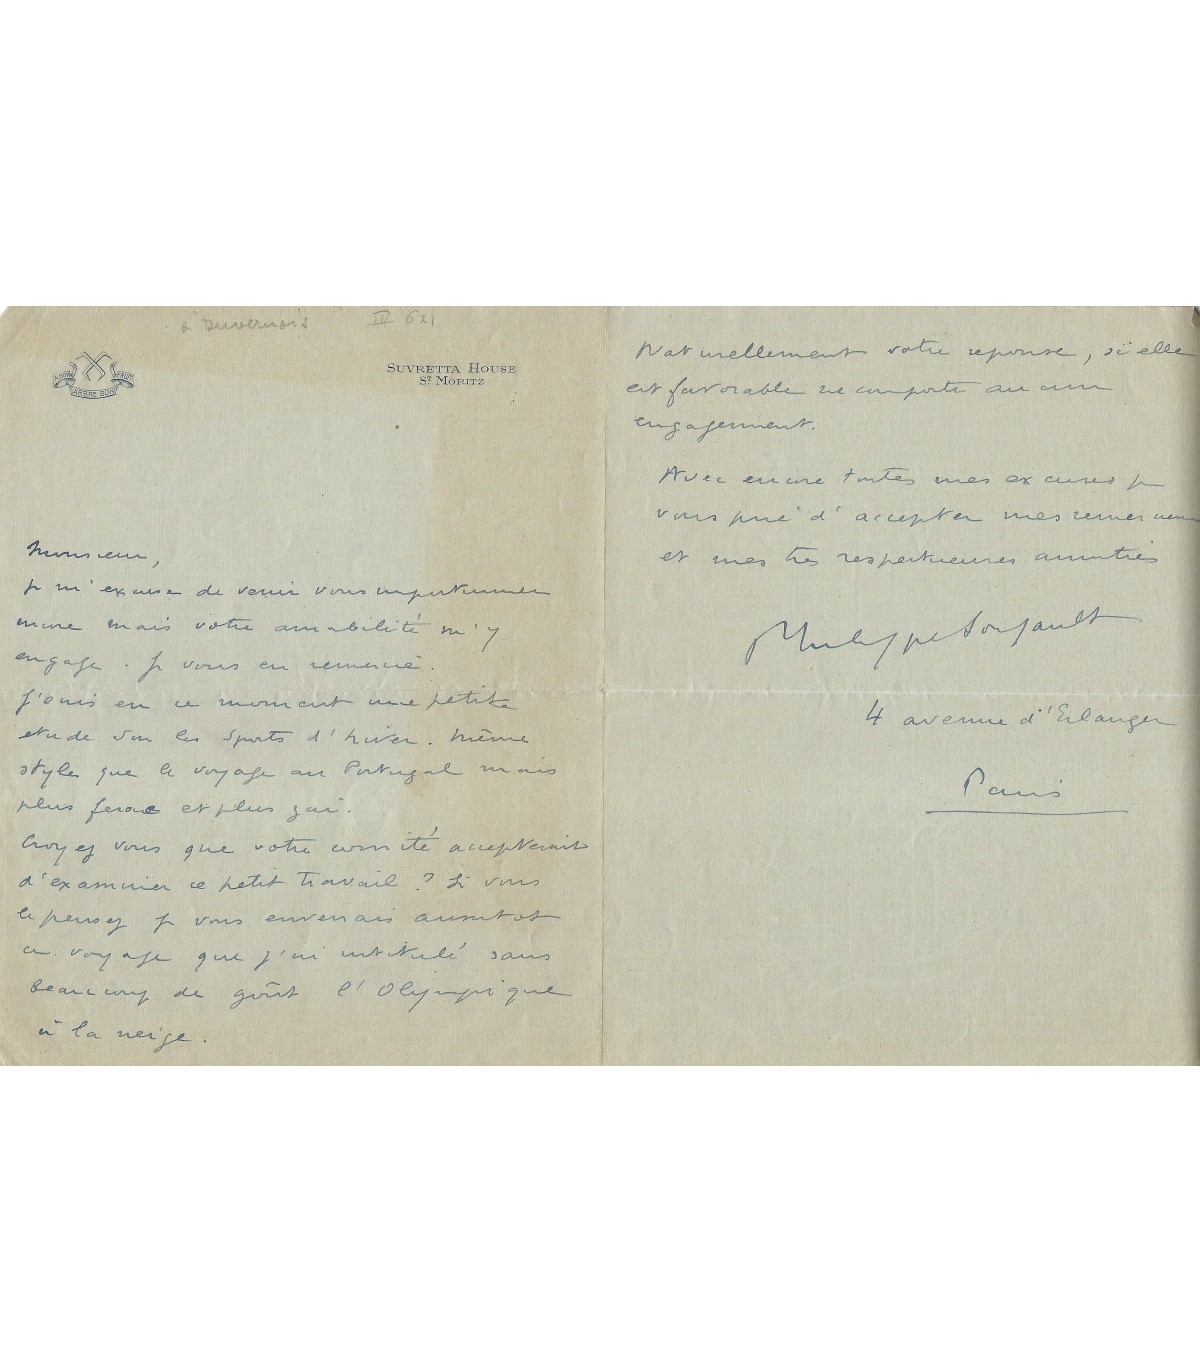 à Duvernois III 621
ARBRE BON
SUVRETTA HOUSE
ST MORITZ
Monsieur,
Je m'excuse de venir vous importuner
encore mais votre amabilité m'y
engage. Je vous en remercie.
J'écris en ce moment une petite
etude sur les sports d'hiver. Même
style que le voyage au Portugal mais
plus feroce et plus gai.
Croyez vous que votre comité accepterait
d'examiner ce petit travail ? Si vous
le pensez je vous enverrais aussitot
ce voyage que j'ai intitulé sans
beaucoup de goût l'Olympique
à la neige.
Naturellement votre reponse, si elle
est favorable ne comporte aucun
engagement.
Avec encore toutes mes excuses je
vous prie d'accepter mes
et mes très respectueuses amitiés
Philippe Soupault
4 avenue d'Erlanger
Paris